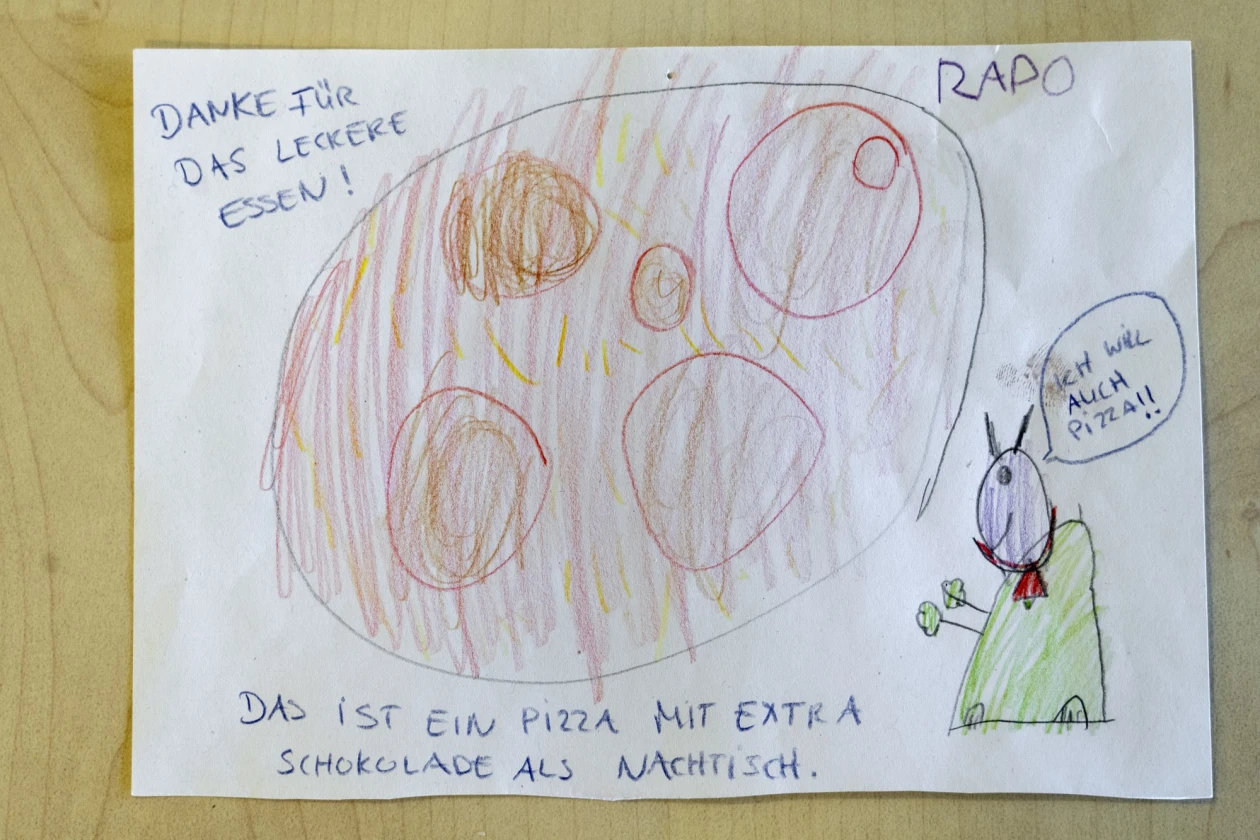 DANKE FÜR
DAS LECKERE
ESSEN!
RAPO
ICH WILL
AUCH
PIZZA!!
DAS IST EIN PIZZA MIT EXTRA
SCHOKOLADE ALS NACHTISCH.